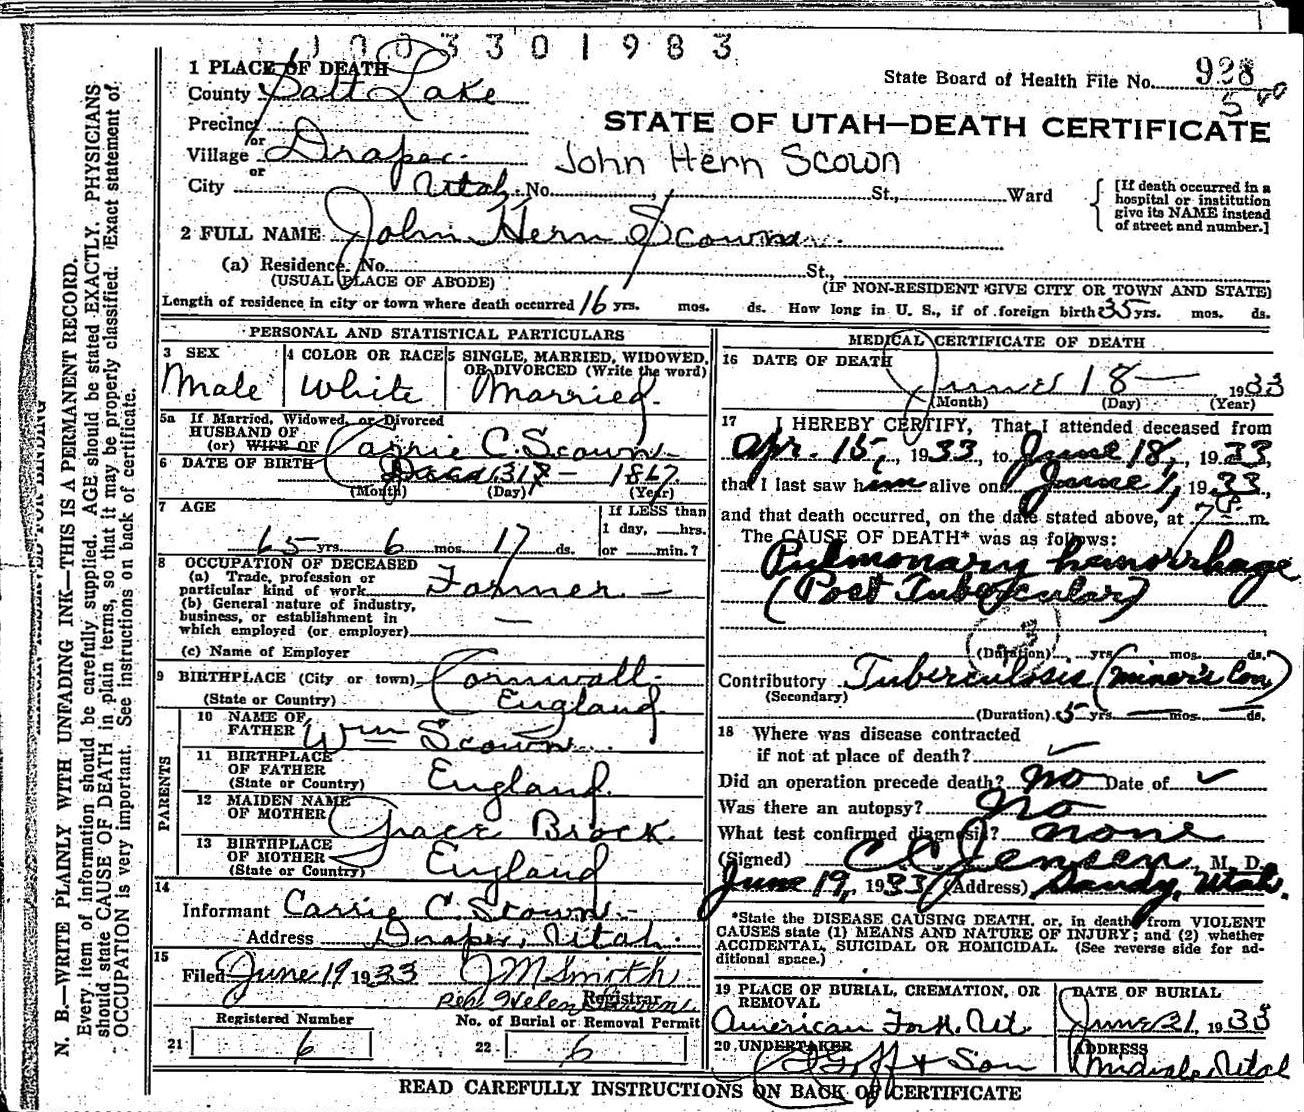 1003301983
1 PLACE OF DEATH
County Salt Lake
State Board of Health File No. 928
500
Precinct
or
Village Draper
STATE OF UTAH—DEATH CERTIFICATE
John Hern Scown
or
City Utah No. St., Ward
[If death occurred in a hospital or institution give its NAME instead of street and number.]
2 FULL NAME John Hern Scown
(a) Residence. No. St.,
(USUAL PLACE OF ABODE) (IF NON-RESIDENT GIVE CITY OR TOWN AND STATE)
Length of residence in city or town where death occurred 16 yrs. mos. ds. How long in U. S., if of foreign birth 35 yrs. mos. ds.
PERSONAL AND STATISTICAL PARTICULARS
3 SEX
Male
4 COLOR OR RACE
White
5 SINGLE, MARRIED, WIDOWED,
OR DIVORCED (Write the word)
Married
5a If Married, Widowed, or Divorced
HUSBAND OF
(or) WIFE OF Carrie C. Scown
6 DATE OF BIRTH 1867
(Month) (Day) (Year)
7 AGE
65 yrs. 6 mos. 17 ds.
If LESS than
1 day, hrs.
or min.?
8 OCCUPATION OF DECEASED
(a) Trade, profession or
particular kind of work Farmer —
(b) General nature of industry,
business, or establishment in
which employed (or employer) —
(c) Name of Employer
9 BIRTHPLACE (City or town) Cornwall
(State or Country) England
PARENTS
10 NAME OF
FATHER Wm Scown
11 BIRTHPLACE
OF FATHER
(State or Country) England
12 MAIDEN NAME
OF MOTHER Grace Brock
13 BIRTHPLACE
OF MOTHER
(State or Country) England
14
Informant Carrie C. Scown
Address Draper, Utah.
15
Filed June 19 1933 J M Smith
Registrar
Registered Number
21 6
No. of Burial or Removal Permit
22 6
MEDICAL CERTIFICATE OF DEATH
16 DATE OF DEATH
June 18 — 1933
(Month) (Day) (Year)
17 I HEREBY CERTIFY, That I attended deceased from
Apr. 15, 1933, to June 18, 1933,
that I last saw him alive on June 1, 1933,
and that death occurred, on the date stated above, at 7 P. m.
The CAUSE OF DEATH* was as follows:
Pulmonary hemorrhage
(Post Tubercular)
(Duration) yrs. mos. ds.
Contributory Tuberculosis (miner's Con)
(Secondary)
(Duration) 5 yrs. mos. ds.
18 Where was disease contracted
if not at place of death?
Did an operation precede death? no Date of
Was there an autopsy? no
What test confirmed diagnosis? none
(Signed) C C Jensen, M. D.
June 19, 1933 (Address) Sandy, Utah.
*State the DISEASE CAUSING DEATH, or, in death from VIOLENT
CAUSES state (1) MEANS AND NATURE OF INJURY; and (2) whether
ACCIDENTAL, SUICIDAL OR HOMICIDAL. (See reverse side for ad-
ditional space.)
19 PLACE OF BURIAL, CREMATION, OR
REMOVAL
American Fork, Ut.
DATE OF BURIAL
June 21, 1933
20 UNDERTAKER
Goff & Son
ADDRESS
Midvale Utah
READ CAREFULLY INSTRUCTIONS ON BACK OF CERTIFICATE
N. B.—WRITE PLAINLY WITH UNFADING INK—THIS IS A PERMANENT RECORD.
Every item of information should be carefully supplied. AGE should be stated EXACTLY. PHYSICIANS
should state CAUSE OF DEATH in plain terms, so that it may be properly classified. Exact statement of
OCCUPATION is very important. See instructions on back of certificate.